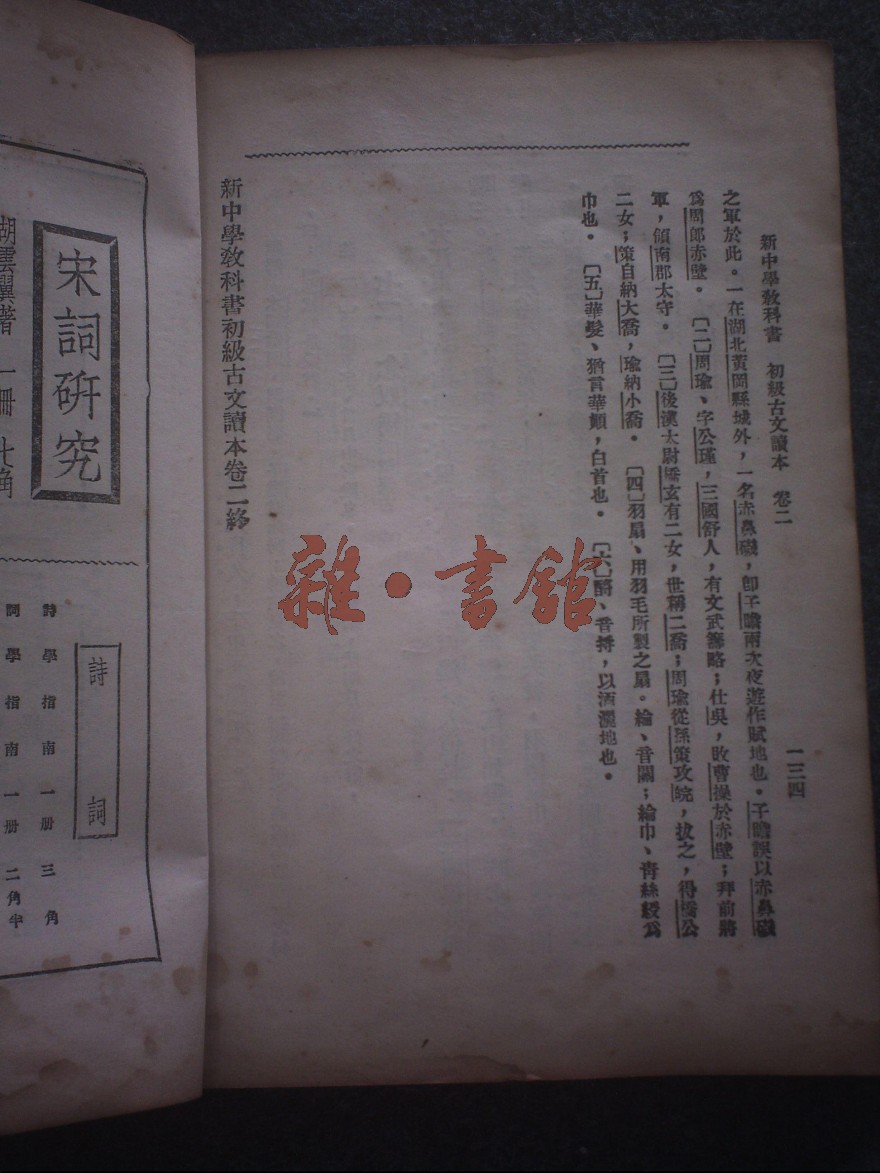 新中學教科書 初級古文讀本 卷二 一三四
之軍於此。一在湖北黃岡縣城外，一名赤鼻磯，卽子瞻兩次夜遊作賦地也。子瞻誤以赤鼻磯
爲周郎赤壁。 〔二〕周瑜、字公瑾，三國舒人，有文武籌略；仕吳，敗曹操於赤壁；拜前將
軍，領南郡太守。 〔三〕後漢太尉橋玄有二女，世稱二喬；周瑜從孫策攻皖，拔之，得橋公
二女；策自納大喬，瑜納小喬。 〔四〕羽扇、用羽毛所製之扇。綸、音關；綸巾、靑絲綬爲
巾也。 〔五〕華髮、猶言華顚，白首也。 〔六〕酹、音捋，以酒灑地也。
新中學敎科書初級古文讀本卷二終
宋詞研究
胡雲翼著 一冊 七角
詩詞
詩學指南一册三角
詞學指南一册二角半
雜·書館